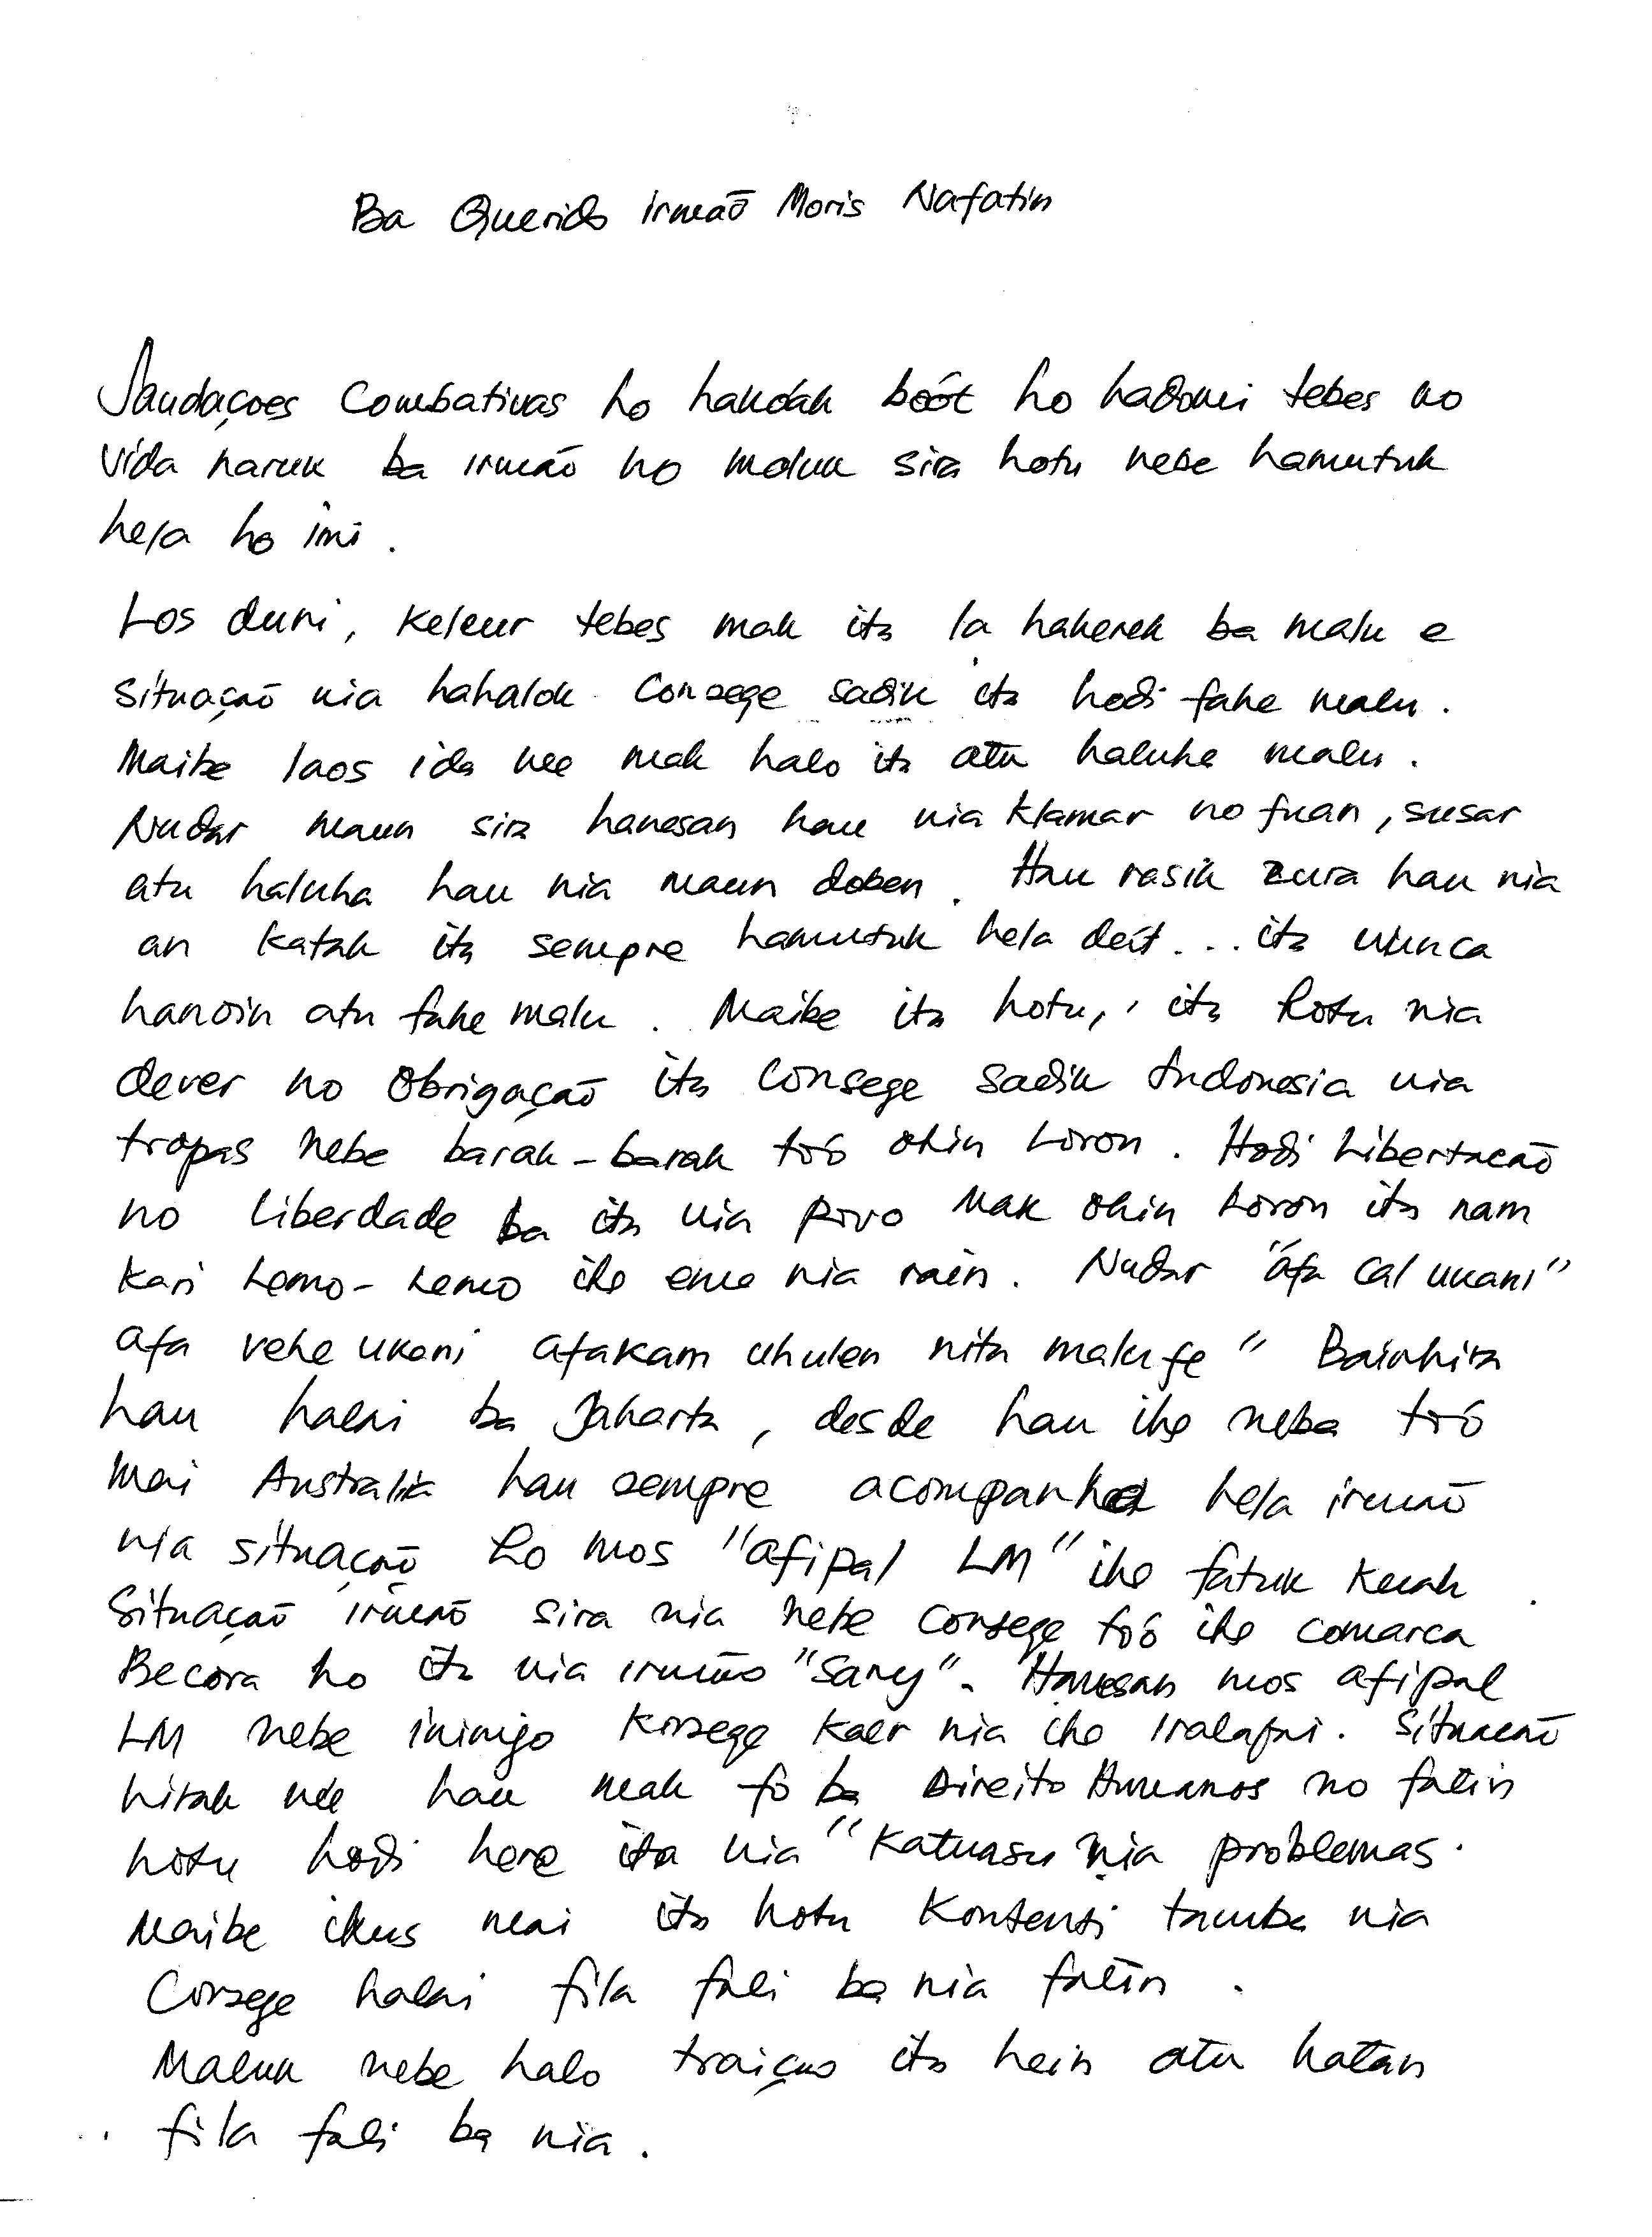 Ba Querido irmaõ Moris Nafatin
Saudaçoes Combativas ho hakoak boót ho hadomi tebes no
vida naruk ba irmaõ no maluk sira hotu nebe hamutuk
hela ho imi.
Los duni, keleur tebes mak ita la hakerek ba malu e
situaçaõ nia hahalok consege sadik ita hodi fahe malu.
Maibe laos ida nee mak halo ita atu haluha malu.
Nudar maun sira hanesan hau nia klamar no fuan, susar
atu haluha hau nia maun doben. Hau rasik zura hau nia
an katak ita sempre hamutuk hela deit... ita nunca
hanoin atu fahe malu. Maibe ita hotu, ita hotu nia
dever no obrigaçaõ ita consege sadik Indonesia nia
tropas nebe barak-barak toó ohin loron. Hodi Libertacaõ
no liberdade ba ita nia povo mak ohin loron ita nam
kari lemo-lemo iha ema nia rain. Nudar "afa cal ukani"
afa vehe ukani afakam uhulen nita malufe" Bainhira
hau halai ba Jakarta, desde hau iha neba toó
mai Australia hau sempre acompanha hela irmaõ
nia situaçaõ ho mos "afipal LM" iha fatuk kuak.
Situaçaõ irmaõ sira nia nebe consege toó iha comarca
Becora ho ita nia irmaõ "Sany". Hanesan mos afipal
LM nebe inimigo konsege kaer nia iha Iralafai. Situacaõ
hirak nee hau mak fo ba Direito Humanos no fatin
hotu hodi hare ita nia "katuasu nia problemas.
Maibe ikus mai ita hotu kontenti tamba nia
Consege halai fila fali ba nia fatin.
Maluk nebe halo traiçaõ ita hein atu hatan
fila fali ba nia.